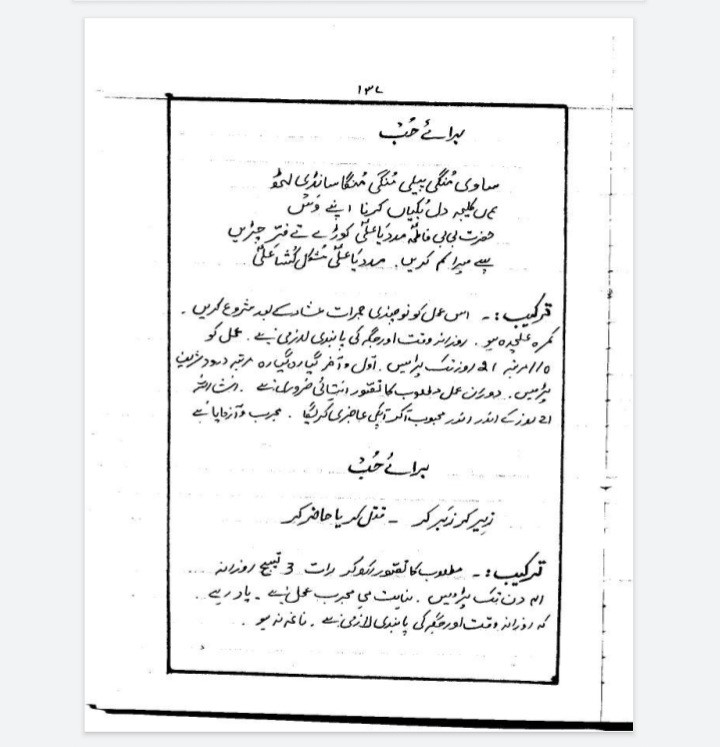 ۱۳۷
برائے حُبّ
ساوی مُنگی پیلی مُنگی مُنگا سانڈی لہُو
کلیجہ دل بُکیاں کرنا اپنے وَسْ
حضرت بی بی فاطمہؑ مدد یا علیؑ کوڑے تے
میرا کم کریں۔ مدد یا علیؑ مُشکل کُشا علیؑ
ترکیب:۔ اس عمل کو نوچندی جمرات عشاء کے بعد شروع کریں۔
کمرہ علیحدہ ہو۔ روزانہ وقت اور جگہ کی پابندی لازمی ہے۔ عمل کو
۱۱۰ مرتبہ 21 روز تک پڑھیں۔ اوّل و آخر گیارہ گیارہ مرتبہ درود شریف
پڑھیں۔ دورانِ عمل مطلوب کا تصور انتہائی ضروری ہے۔ انشاءاللہ
21 روز کے اندر اندر محبوب آکر آپکی حاضری کریگا۔ مجرب و آزمایا ہے
برائے حُبّ
زیر کر زبر کر ۔ قتل کر یا حاضر کر
ترکیب:۔ مطلوب کا تصور رکھ کر رات 3 تسبیح روزانہ
دن تک پڑھیں۔ نہایت ہی مجرب عمل ہے۔ یاد رہے
کہ روزانہ وقت اور جگہ کی پابندی لازمی ہے۔ ناغہ نہ ہو۔